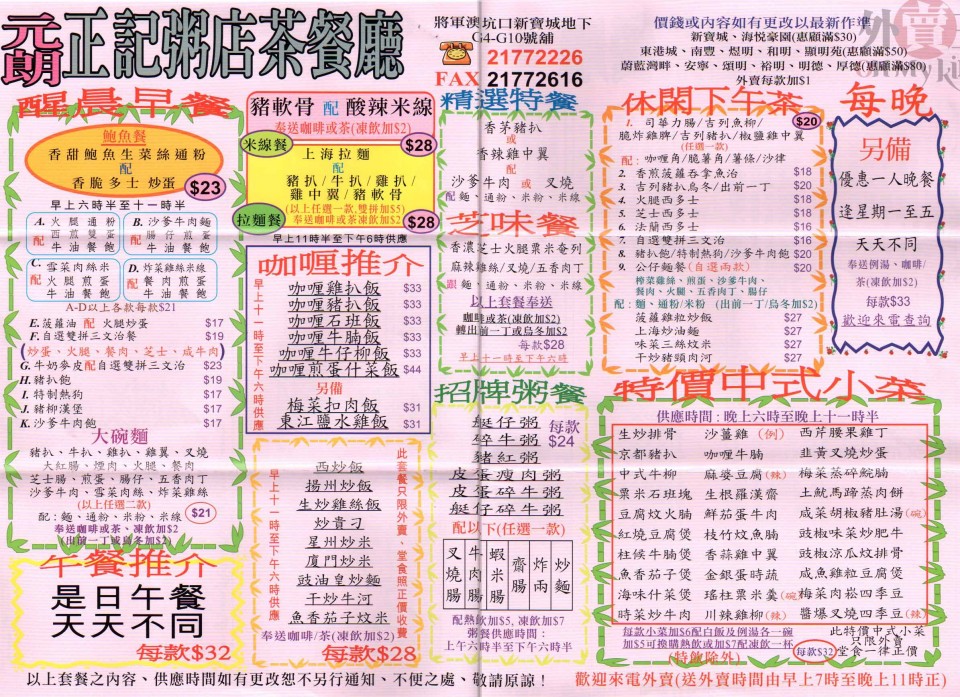 元朗 正記粥店茶餐廳
將軍澳坑口新寶城地下
G4-G10號舖
21772226
FAX 21772616
價錢或內容如有更改以最新作準
新寶城、海悅豪園(惠顧滿$30)
東港城、南豐、煜明、和明、顯明苑(惠顧滿$50)
蔚藍灣畔、安寧、頌明、裕明、明德、厚德(惠顧滿$80)
外賣每款加$1
外賣
醒晨早餐
鮑魚餐
香甜鮑魚生菜絲通粉
配
香脆多士 炒蛋
$23
早上六時半至十一時半
A. 火腿通粉
配 西煎雙蛋
牛油餐飽
B. 沙爹牛肉麵
配 腸仔煎蛋
牛油餐飽
C. 雪菜肉絲米
配 火腿煎蛋
牛油餐飽
D. 炸菜雞絲米線
配 餐肉煎蛋
牛油餐飽
A-D以上各款每款$21
E. 菠蘿油 配 火腿炒蛋 $17
F. 自選雙拼三文治餐 $19
(炒蛋、火腿、餐肉、芝士、咸牛肉)
G. 牛奶麥皮配自選雙拼三文治 $23
H. 豬扒飽 $19
I. 特制熱狗 $17
J. 豬柳漢堡 $17
K. 沙爹牛肉飽 $17
大碗麵
豬扒、牛扒、雞扒、雞翼、叉燒
大紅腸、煙肉、火腿、餐肉
芝士腸、煎蛋、腸仔、五香肉丁
沙爹牛肉、雪菜肉絲、炸菜雞絲
(以上任選二款)
配: 麵、通粉、米粉、米線 $21
奉送咖啡或茶、凍飲加$2
(出前一丁或烏冬加$2)
午餐推介
是日午餐
天天不同
每款$32
豬軟骨 配 酸辣米線
奉送咖啡或茶(凍飲加$2)
米線餐 $28
上海拉麵
配
豬扒/牛扒/雞扒/
雞中翼/豬軟骨
(以上任選一款,雙拼加$5)
奉送咖啡或茶凍飲加$2
拉麵餐 $28
早上11時半至下午6時供應
咖喱推介
早上十一時至下午六時供應
咖喱雞扒飯 $33
咖喱豬扒飯 $33
咖喱石班飯 $33
咖喱牛腩飯 $33
咖喱牛仔柳飯 $33
咖喱煎蛋什菜飯 $44
另備
梅菜扣肉飯 $31
東江鹽水雞飯 $31
早上十一時至下午六時供應
西炒飯
揚州炒飯
生炒雞絲飯
炒貴刁
星州炒米
廈門炒米
豉油皇炒麵
干炒牛河
魚香茄子炆米
此套餐只限外賣、堂食照正價收費
奉送咖啡/茶(凍飲加$2)
每款$28
精選特餐
香茅豬扒
或
香辣雞中翼
配
沙爹牛肉 或 叉燒
配 麵、通粉、米粉、米線
芝味餐
香濃芝士火腿粟米奄列
麻辣雞絲/叉燒/五香肉丁
跟 麵、通粉、米粉、米線
以上套餐奉送
咖啡或茶(凍飲加$2)
轉出前一丁或烏冬加$2
每款$28
早上十一時至下午六時
招牌粥餐
艇仔粥
碎牛粥
豬紅粥
皮蛋瘦肉粥
皮蛋碎牛粥
艇仔碎牛粥
每款
$24
配以下(任選一款)
叉燒腸 牛肉腸 蝦米腸 齋腸 炸兩 炒麵
配熱飲加$5, 凍飲加$7
粥餐供應時間:
上午六時半至下午六時半
休閑下午茶
1. 司華力腸/吉列魚柳/ $20
脆炸雞脾/吉列豬扒/椒鹽雞中翼
(任選一款)
配: 咖喱角/脆薯角/薯條/沙律
2. 香煎菠蘿吞拿魚治 $18
3. 吉列豬扒烏冬/出前一丁 $20
4. 火腿西多士 $18
5. 芝士西多士 $18
6. 法蘭西多士 $16
7. 自選雙拼三文治 $16
8. 豬扒飽/特制熱狗/沙爹牛肉飽 $20
9. 公仔麵餐(自選兩款) $20
榨菜雞絲、煎蛋、沙爹牛肉、
餐肉、火腿、五香肉丁、腸仔
配: 麵、通粉/米粉 (出前一丁/烏冬加$2)
菠蘿雞粒炒飯 $27
上海炒油麵 $27
味菜三絲炆米 $27
干炒豬頭肉河 $27
每晚
另備
優惠一人晚餐
逢星期一至五
天天不同
奉送例湯、咖啡/
茶(凍飲加$2)
每款$33
歡迎來電查詢
特價中式小菜
供應時間: 晚上六時至晚上十一時半
生炒排骨 沙薑雞 (例) 西芹腰果雞丁
京都豬扒 咖喱牛腩 韭黃叉燒炒蛋
中式牛柳 麻婆豆腐(辣) 梅菜蒸鯇腩
粟米石班塊 生根羅漢齋 土魷馬蹄蒸肉餅
豆腐炆火腩 鮮茄蛋牛肉 咸菜胡椒豬肚湯(碗)
紅燒豆腐煲 枝竹炆魚腩 豉椒味菜炒肥牛
柱侯牛腩煲 香蒜雞中翼 豉椒涼瓜炆排骨
魚香茄子煲 金銀蛋時蔬 咸魚雞粒豆腐煲
海味什菜煲 瑤柱粟米羹(碗) 梅菜肉崧四季豆
時菜炒牛肉 川辣雞柳(辣) 醬爆叉燒四季豆(辣)
每款小菜加$6配白飯及例湯各一碗
加$5可換購熱飲或加$7配凍飲一杯
(特飲除外)
每款$32
此特價中式小菜
只限外賣
堂食一律正價
以上套餐之內容、供應時間如有更改恕不另行通知、不便之處、敬請原諒!
歡迎來電外賣(送外賣時間由早上7時至晚上11時正)